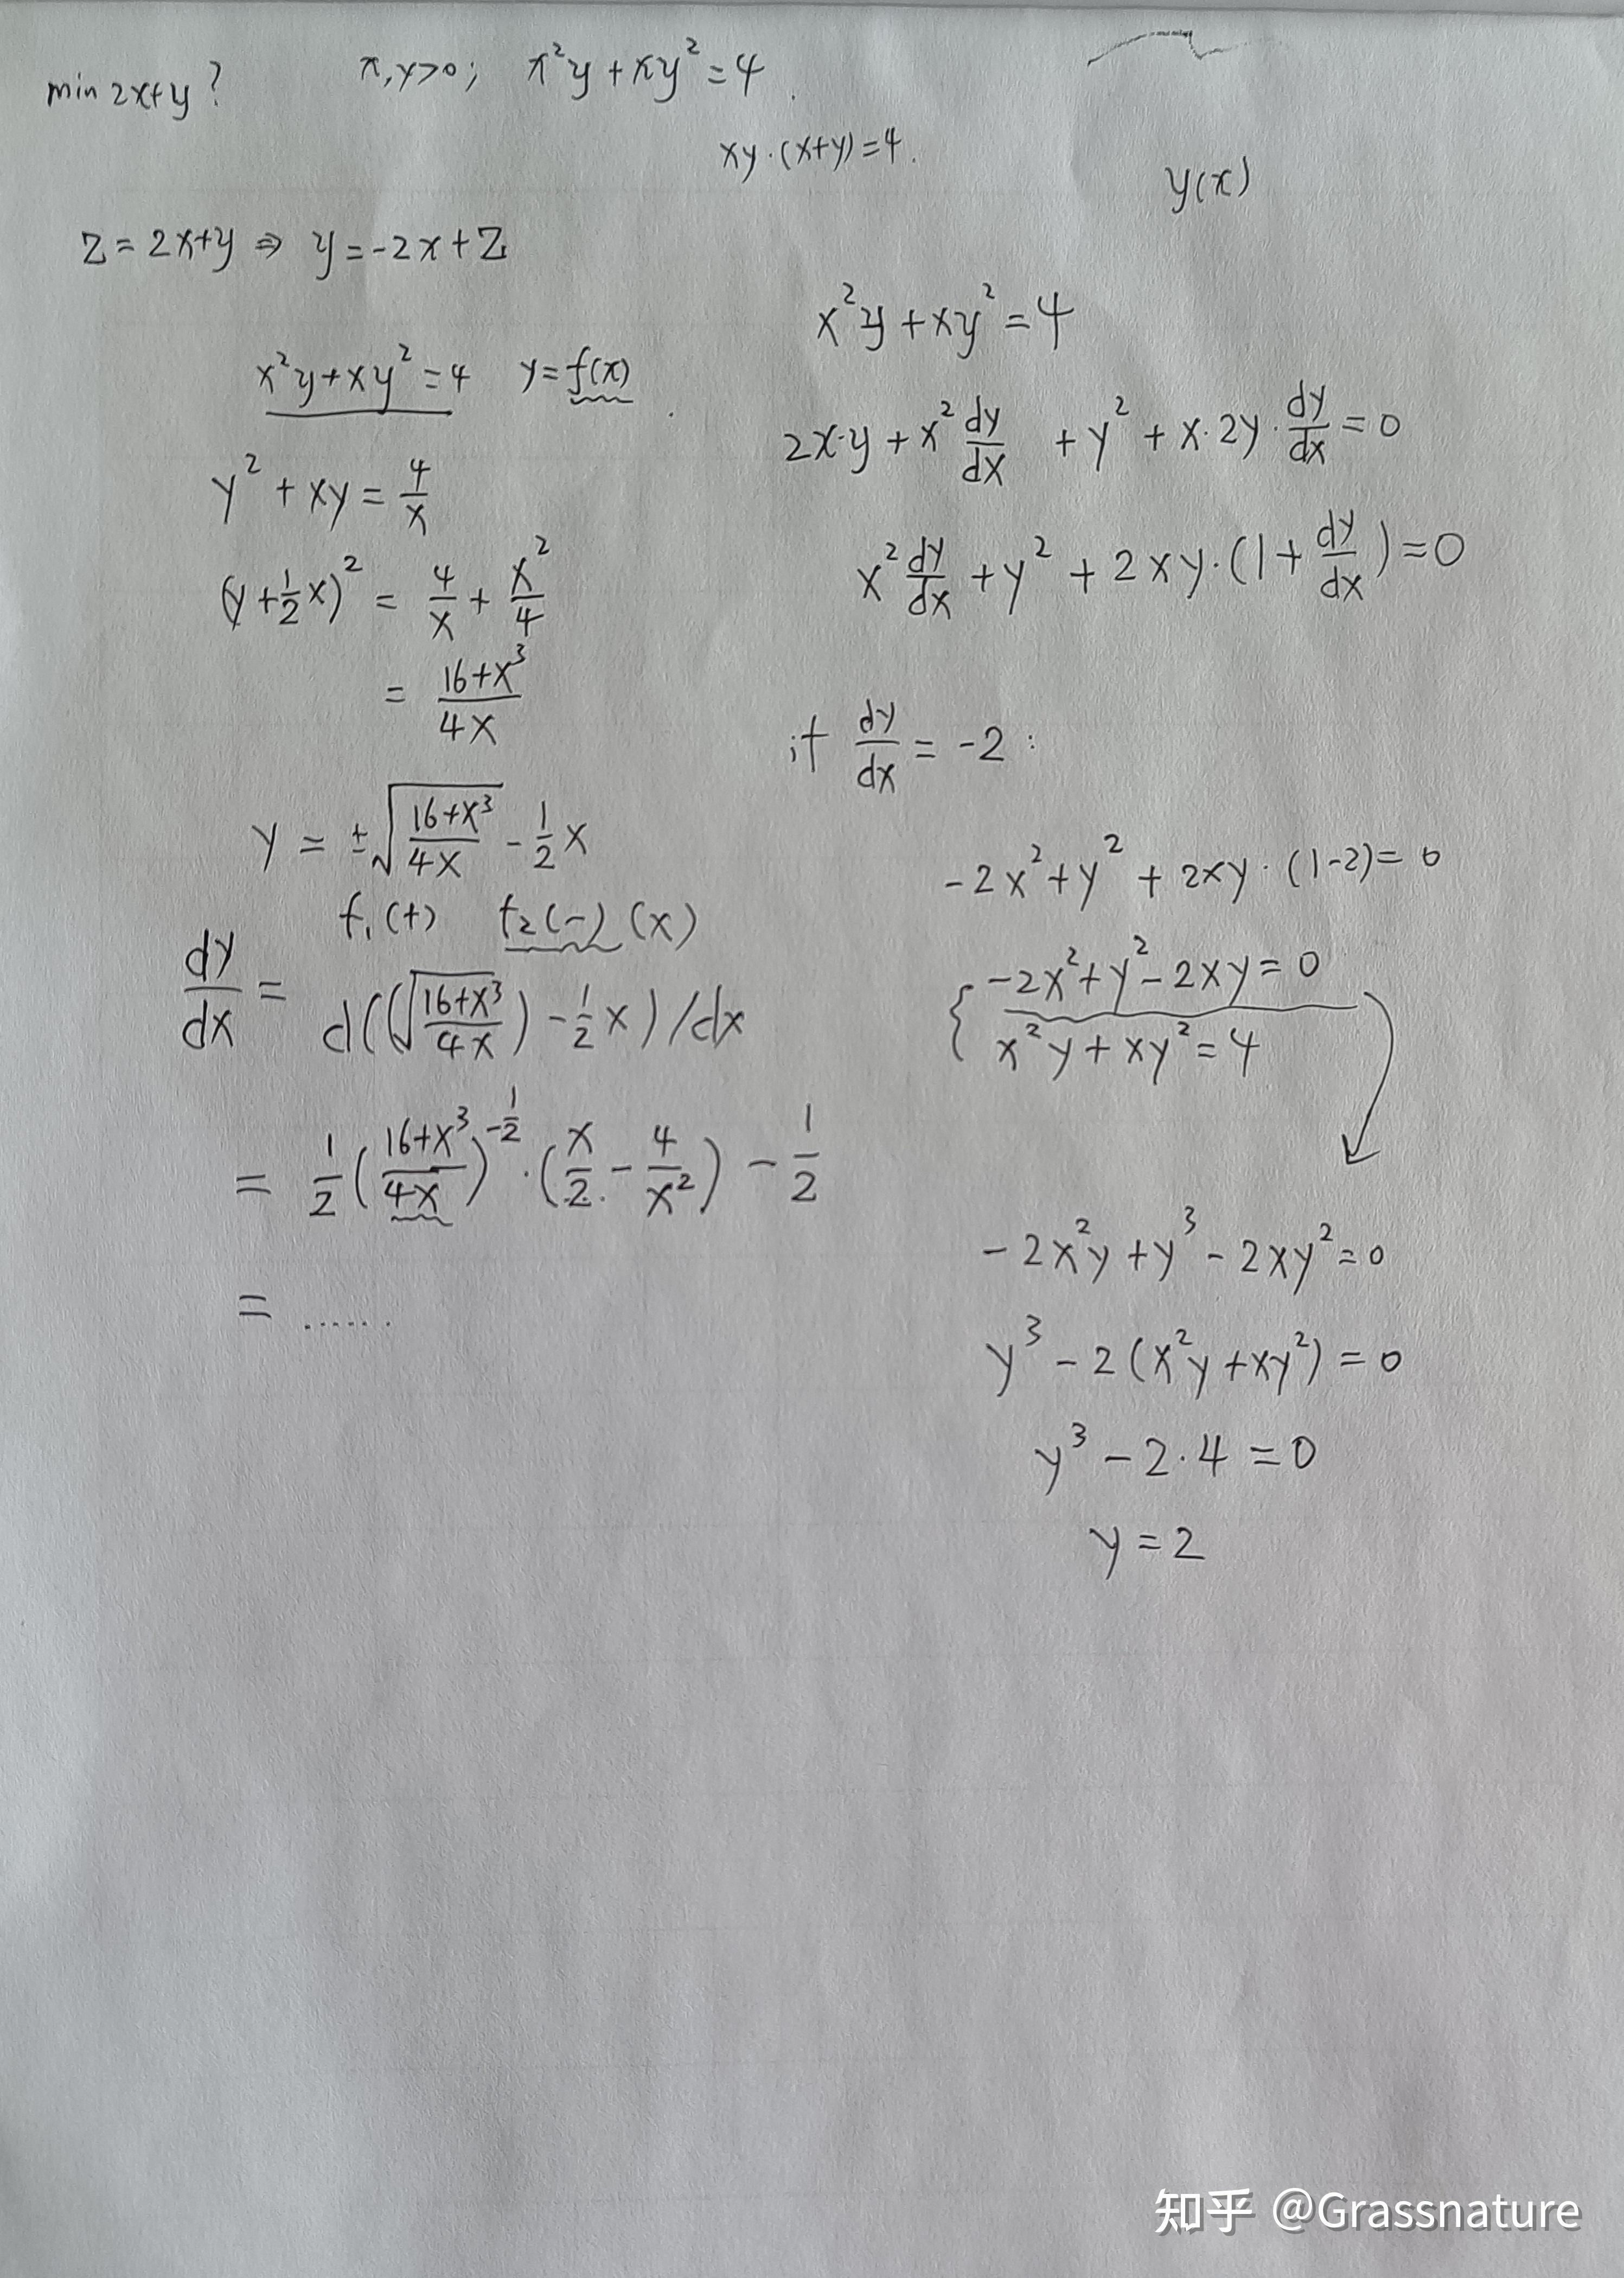 min 2x+y? x,y>0; x²y+xy²=4.
xy·(x+y)=4.
y(x)
Z=2x+y ⇒ y=-2x+Z
x²y+xy²=4 y=f(x)
y²+xy=4/x
(y+1/2x)²=4/x+x²/4
=(16+x³)/4x
y=±√((16+x³)/4x)-1/2x
f₁(+) f₂(-)(x)
dy/dx=d((√((16+x³)/4x))-1/2x)/dx
=1/2((16+x³)/4x)^(-1/2)·(x/2-4/x²)-1/2
=......
x²y+xy²=4
2x·y+x²dy/dx+y²+x·2y·dy/dx=0
x²dy/dx+y²+2xy·(1+dy/dx)=0
if dy/dx=-2:
-2x²+y²+2xy·(1-2)=0
{-2x²+y²-2xy=0
x²y+xy²=4
-2x²y+y³-2xy²=0
y³-2(x²y+xy²)=0
y³-2·4=0
y=2
知乎 @Grassnature